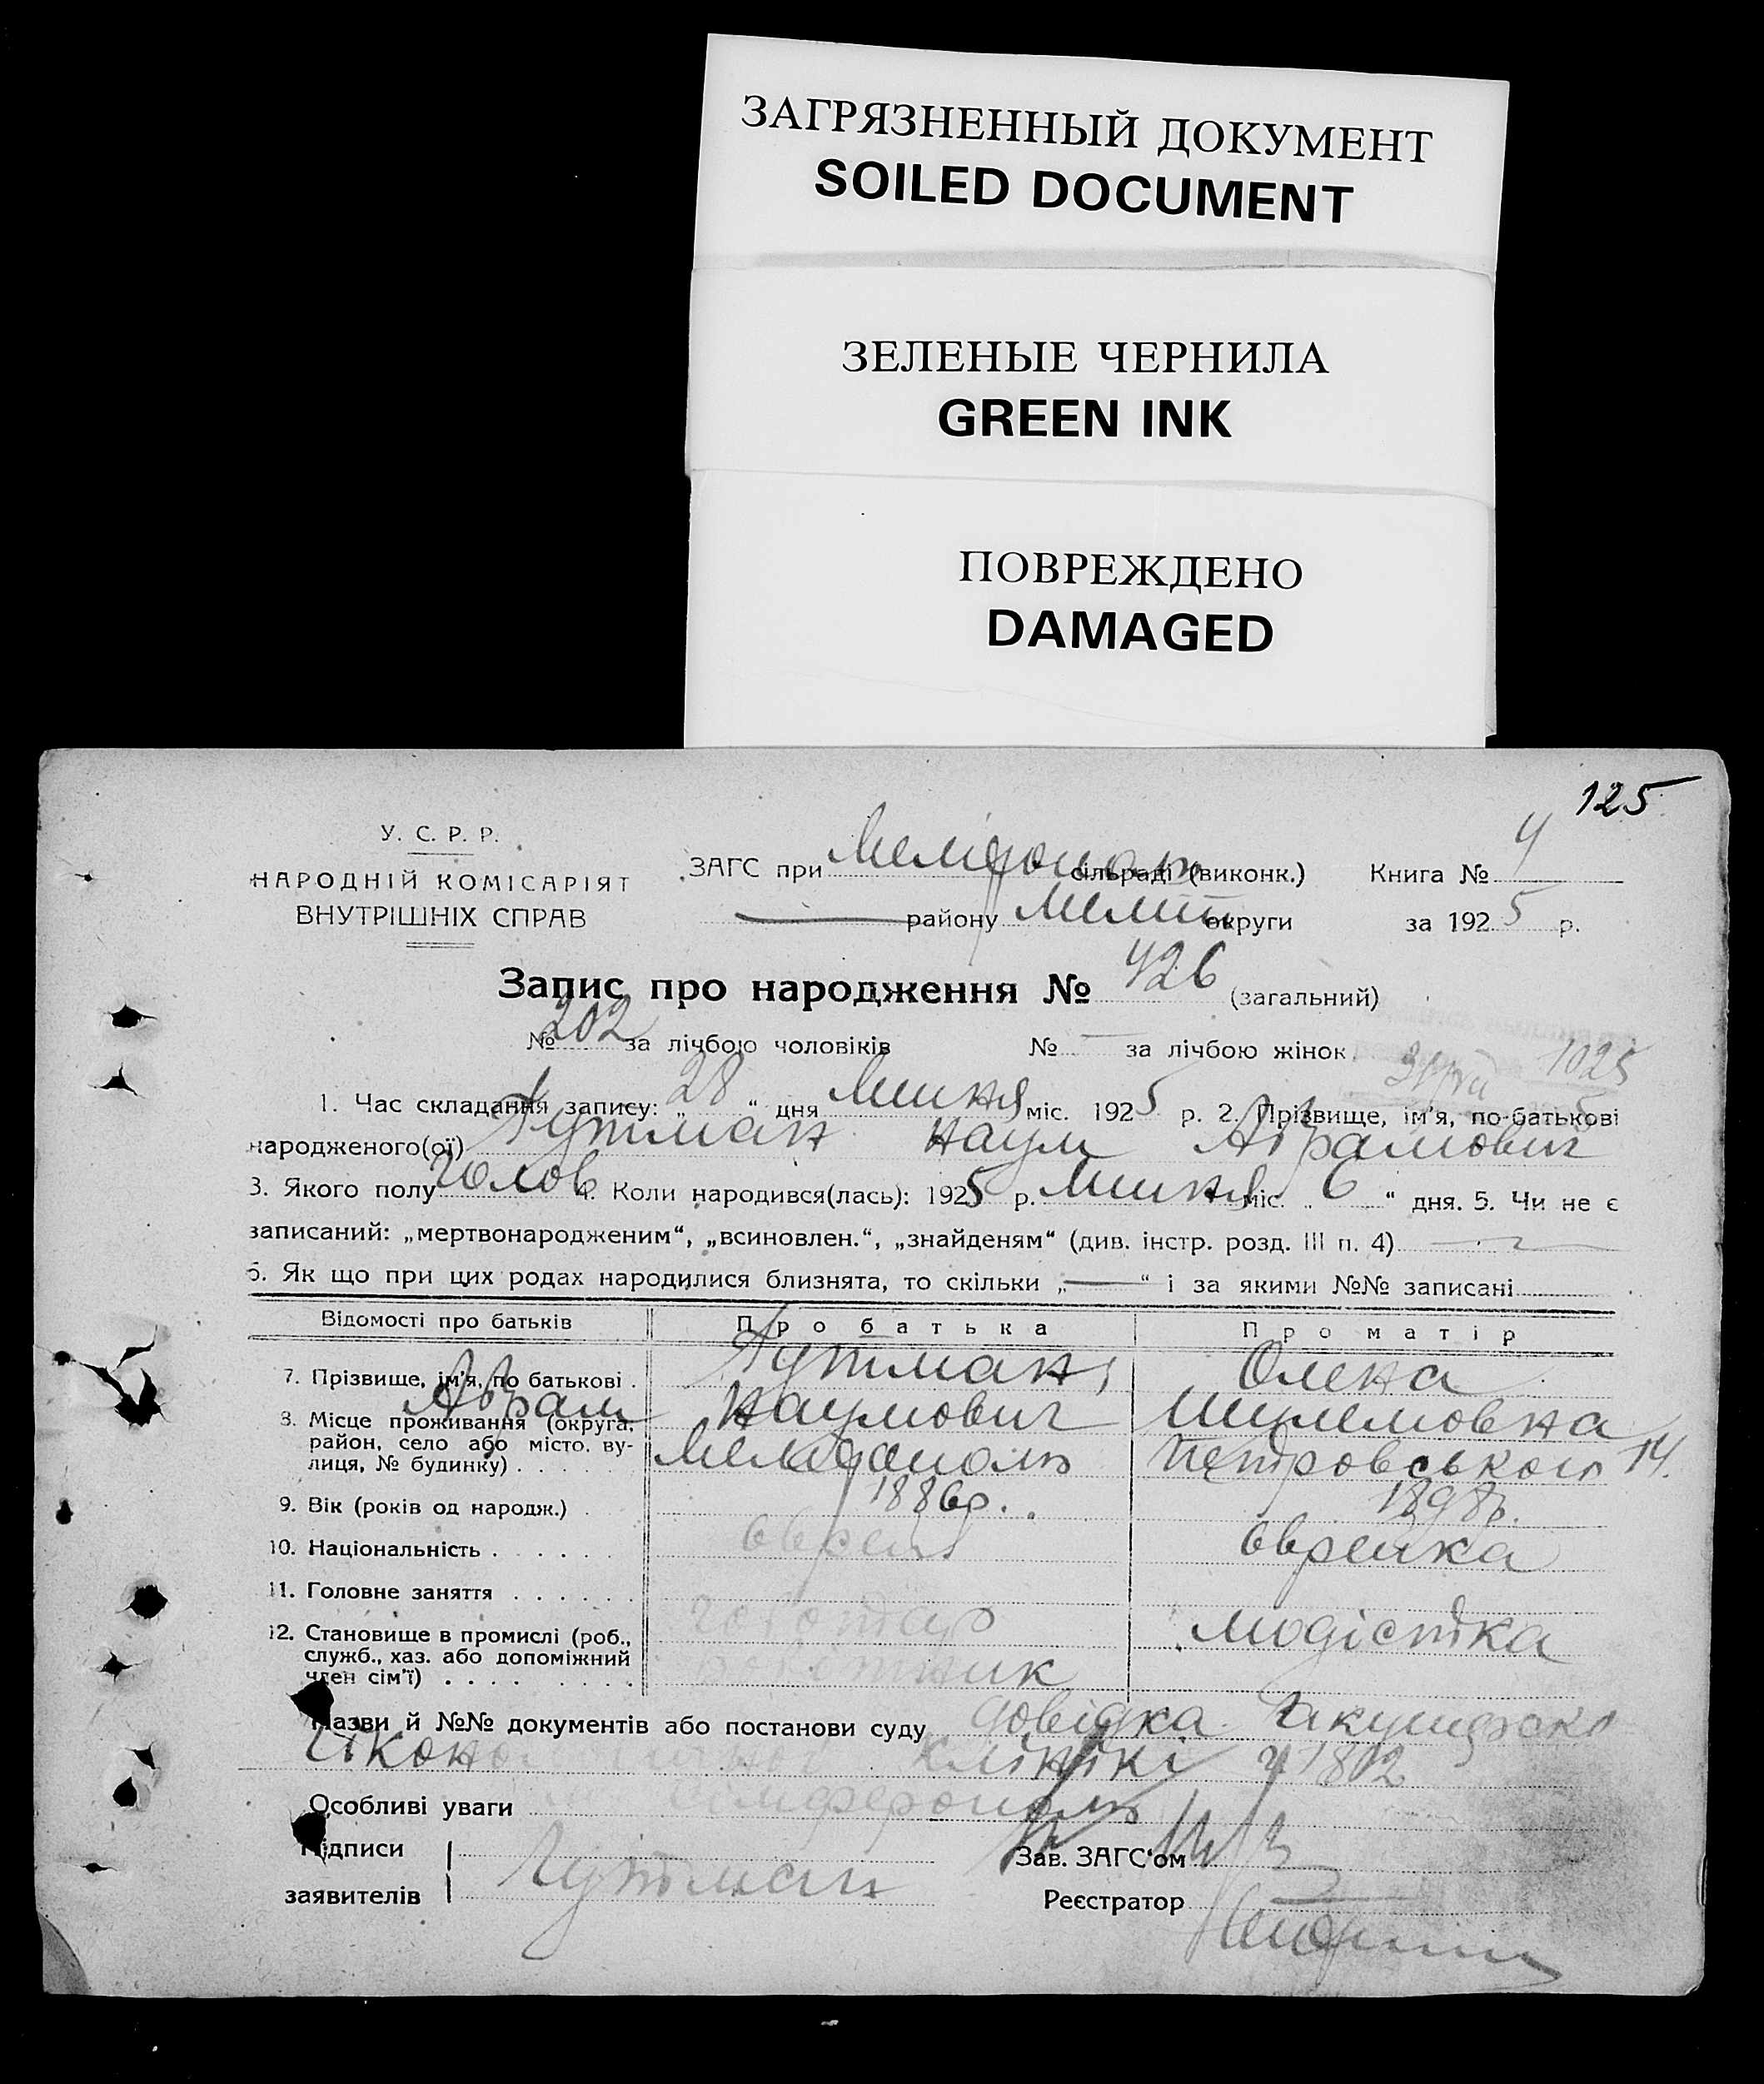 ЗАГРЯЗНЕННЫЙ ДОКУМЕНТ
SOILED DOCUMENT
ЗЕЛЕНЫЕ ЧЕРНИЛА
GREEN INK
ПОВРЕЖДЕНО
DAMAGED
125
У. С. Р. Р.
НАРОДНІЙ КОМІСАРІЯТ
ВНУТРІШНІХ СПРАВ
ЗАГС при сільраді (виконк.) Книга № 4
району Меліт округи за 1925 р.
Запис про народження № 426 (загальний)
№ 202 за лічбою чоловіків № — за лічбою жінок
1. Час складання запису: „28“ дня Липня міс. 1925 р. 2. Прізвище, ім'я, по-батькові
народженого(ої) Гутман Наум Абрамович
3. Якого полу Чолов 4. Коли народився(лась): 1925 р. Липня міс. „6“ дня. 5. Чи не є
записаний: „мертвонародженим“, „всиновлен.“, „знайденям“ (див. інстр. розд. III п. 4)
6. Як що при цих родах народилися близнята, то скільки „—“ і за якими №№ записані
Відомості про батьків Про батька Про матір
7. Прізвище, ім'я, по батькові Гутман, Олена
Абрам Наумович Шулемовна
8. Місце проживання (округа, район, село або місто, вулиця, № будинку) Мелітополь Петровського 14.
9. Вік (років од народж.) 1886р. 1898р.
10. Національність еврей еврейка
11. Головне заняття
12. Становище в промислі (роб., служб., хаз. або допоміжний член сім'ї) модістка
Назви й №№ документів або постанови суду довідка Акушерско
клінікі 1802
Особливі уваги Сімферополь
Підписи
заявителів Гутман
Зав. ЗАГС'ом
Реєстратор